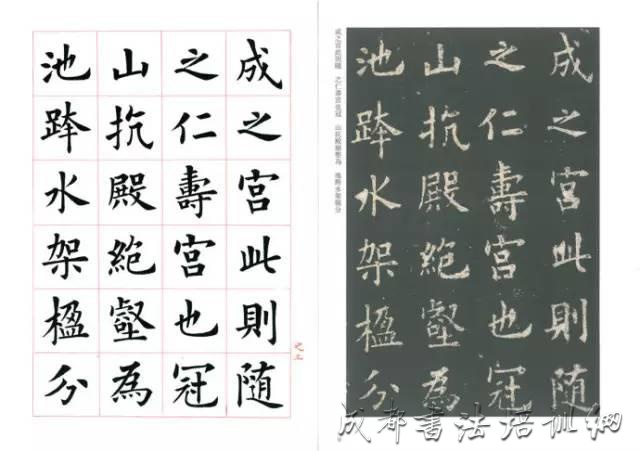 成之宮此則随
之仁壽宮也冠
山抗殿絶壑為
池跨水架楹分
成之宮此則隨 之仁壽宮也冠 山抗殿絕壑為 池跨水架楹分
成之宮此則随
之仁壽宮也冠
山抗殿絶壑為
池跨水架楹分
成都书法培训网